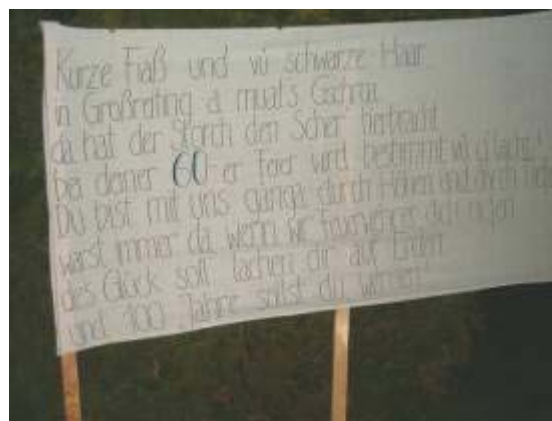 Kurze Fiaß und vü schwarze Haar
in Großrating a muats Gschroa
da hat der Storch den Scher herbracht
bei deiner 60-er Feier wird bestimmt vü glacht!
Du bist mit uns ganga durch Höhen und durch
warst immer da, wenn wir Feuerwehrer dich
des Glück soll lachen dir auf Erden
und 100 Jahre sollst du werden!